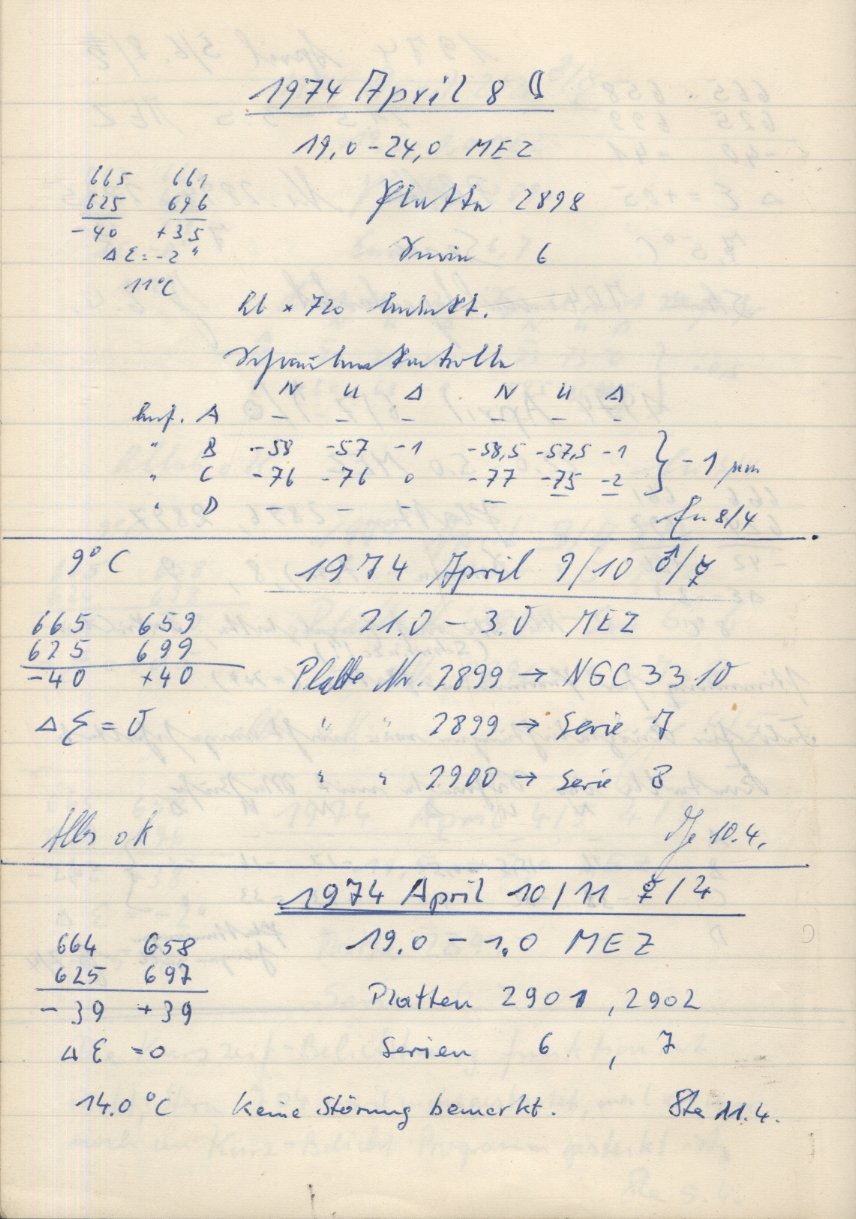 1974 April 8 ☾
19,0-24,0 MEZ
665 661
625 696
-40 +35
ΔE=-2"
11°C
Platte 2898
Serie 6
N U Δ N U Δ
A - - - -
" B -58 -57 -1 -58,5 -57,5 -1 } -1 μm
" C -76 -76 0 -77 -75 -2
" D - - -
8/4
9°C 1974 April 9/10 ♂/☿
665 659 21.0 - 3.0 MEZ
625 699
-40 +40 Platte Nr. 2899 → NGC 3310
ΔE = 0 " " 2899 → Serie 7
" " 2900 → Serie 8
Alles ok 10.4.
1974 April 10/11 ☿/♃
664 658 19.0 - 1.0 MEZ
625 697
-39 +39 Platten 2901, 2902
ΔE =0 Serien 6, 7
14.0 °C Keine Störung bemerkt. Ste 11.4.